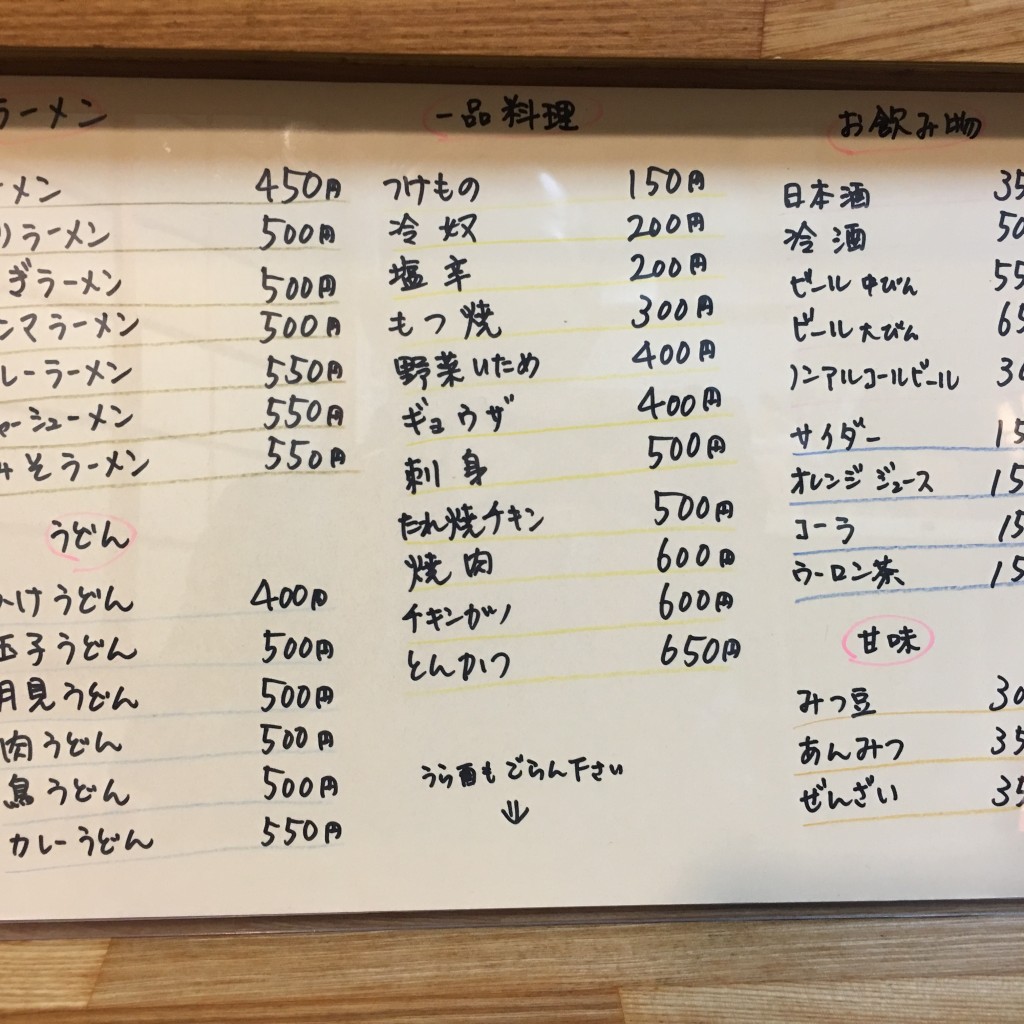 ラーメン
メン 450円
りラーメン 500円
ぎラーメン 500円
ンマラーメン 500円
レーラーメン 550円
ャーシューメン 550円
みそラーメン 550円
うどん
かけうどん 400円
玉子うどん 500円
月見うどん 500円
肉うどん 500円
鳥うどん 500円
カレーうどん 550円
一品料理
つけもの 150円
冷奴 200円
塩辛 200円
もつ焼 300円
野菜いため 400円
ギョウザ 400円
刺身 500円
たれ焼チキン 500円
焼肉 600円
チキンカツ 600円
とんかつ 650円
うら面もごらん下さい
⇓
お飲み物
日本酒 35
冷酒 50
ビール 中びん 55
ビール 大びん 65
ノンアルコールビール 30
サイダー 15
オレンジジュース 15
コーラ 15
ウーロン茶 15
甘味
みつ豆 30
あんみつ 35
ぜんざい 35